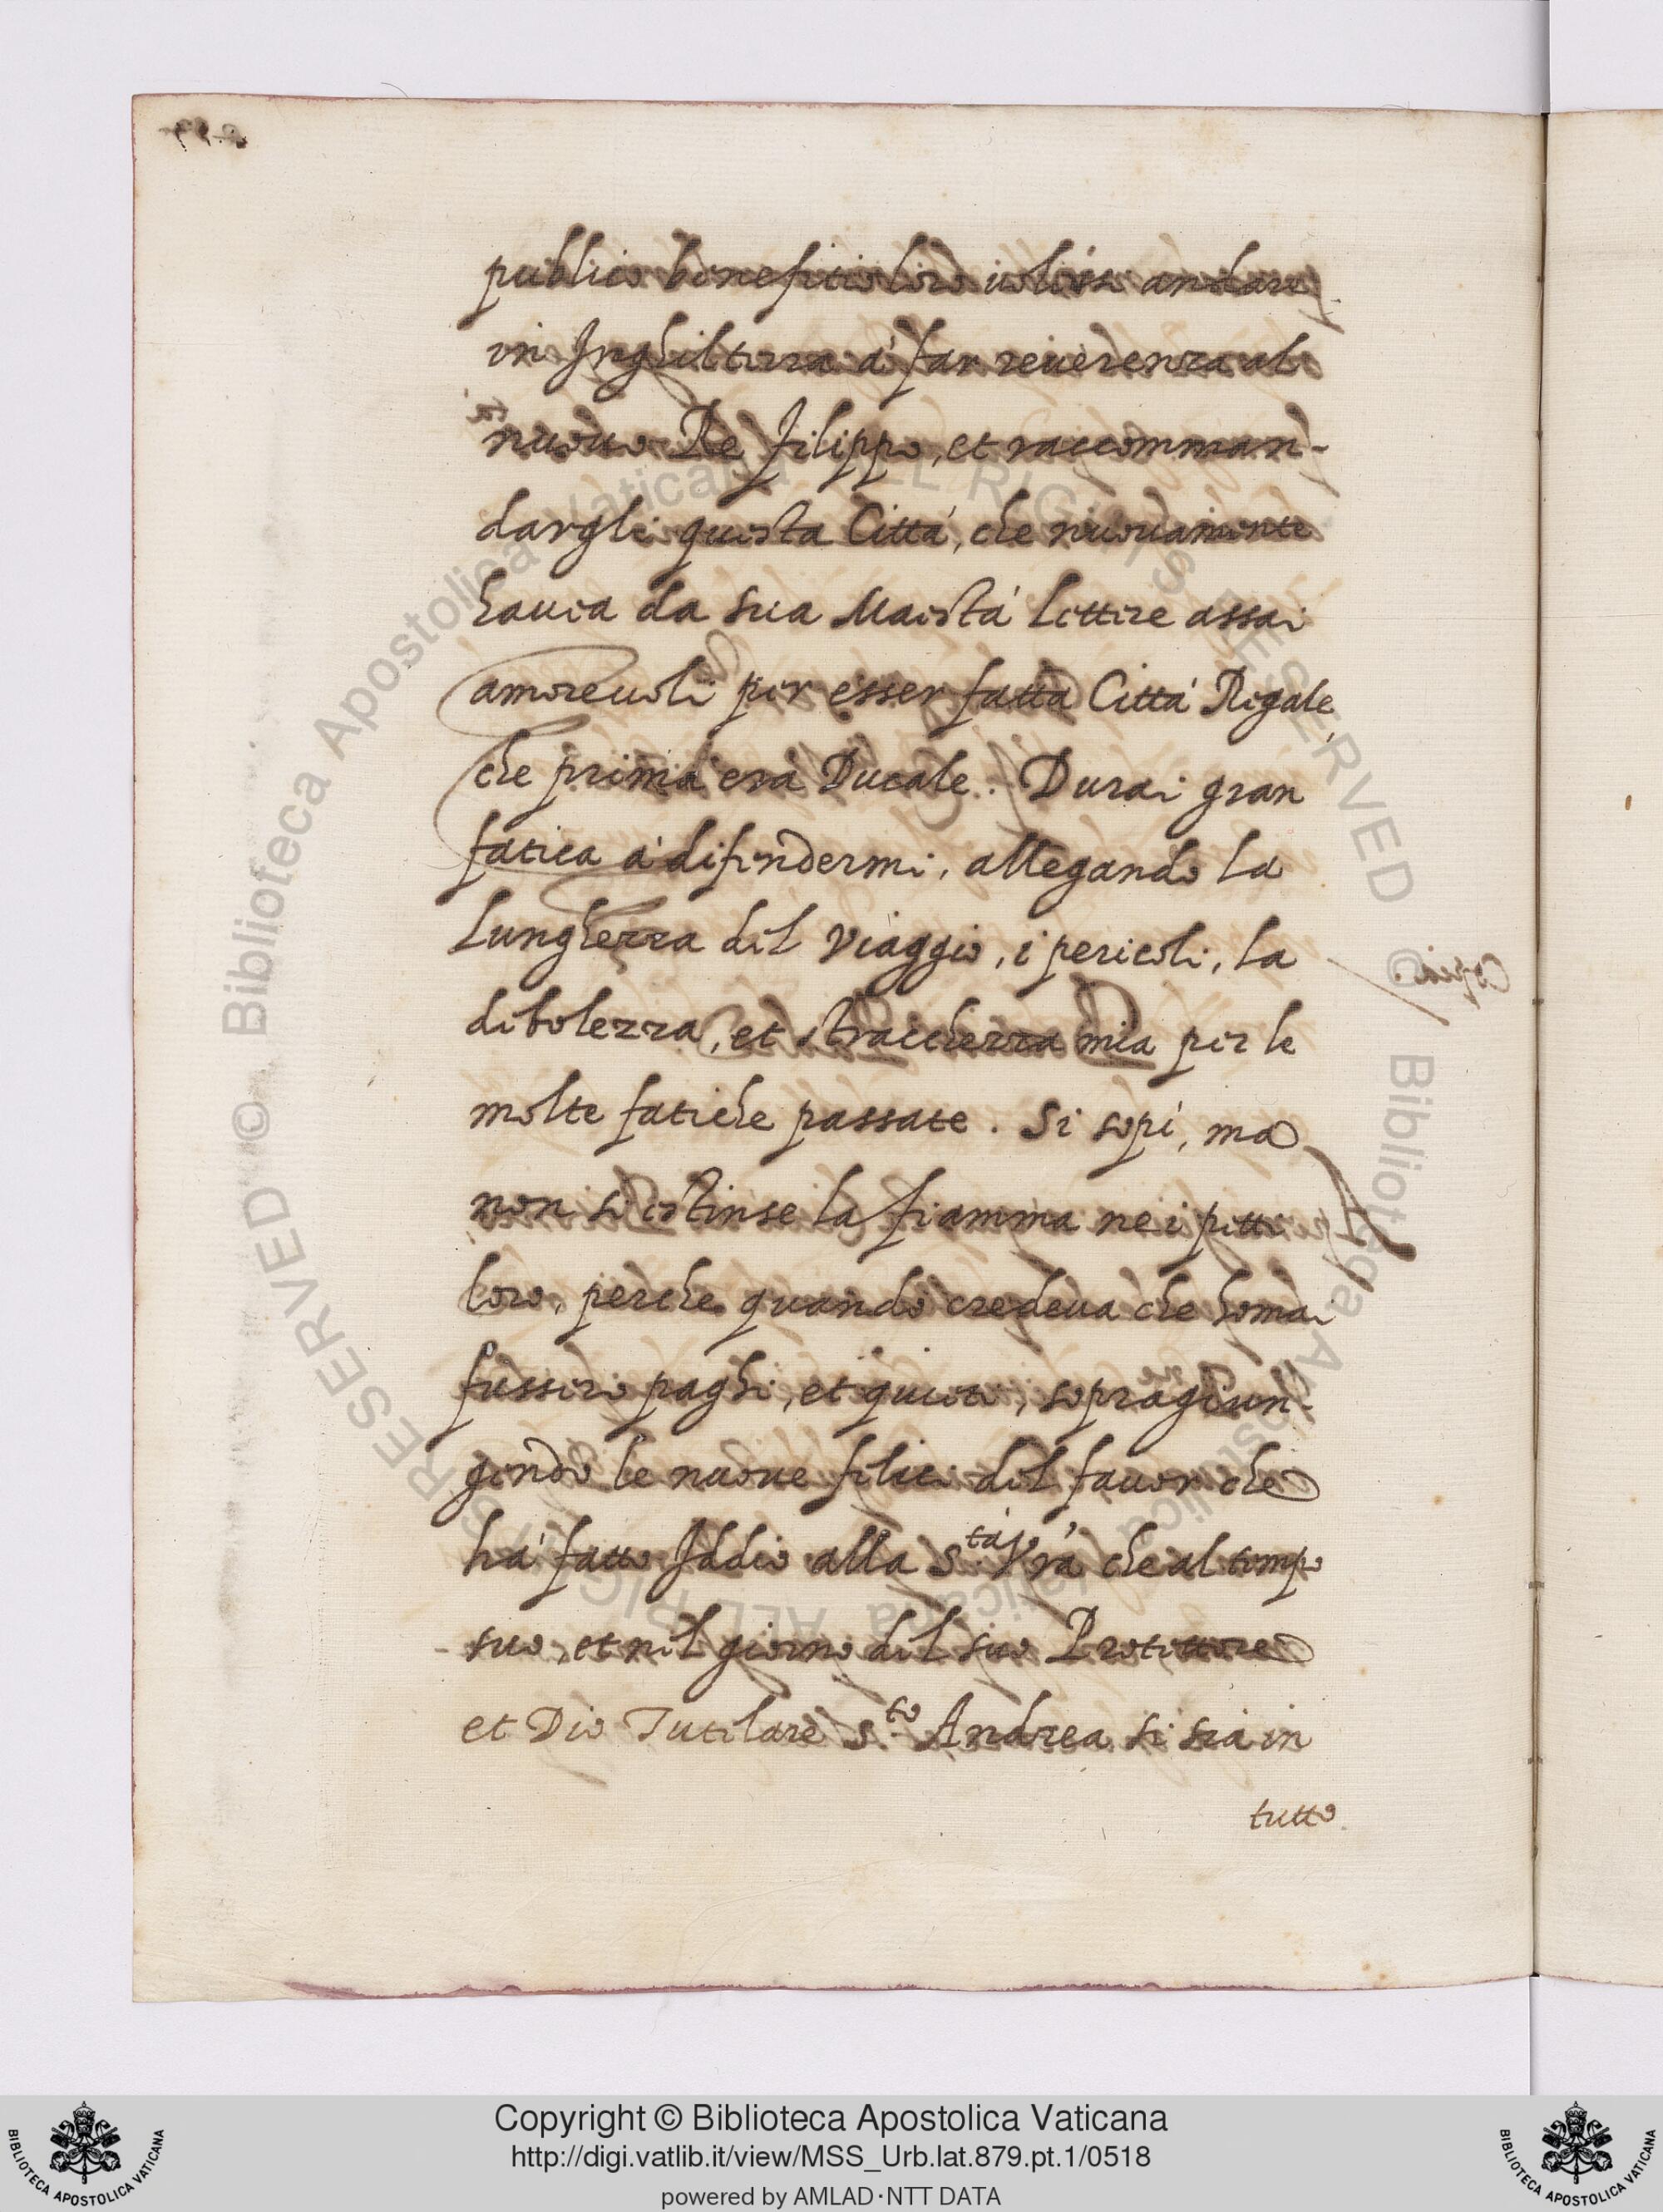 publico benefitio loro uolirsi andare
in Inghilterra à far reuerenza al
nuouo Re Filippo, et raccomman-
dargli questa Città, che nuouamente
hauea da sua Maestà lettere assai
amoreuoli per esser fatta Città Regale,
che prima era Ducale. Durai gran
fatica à difendermi, allegando la
lunghezza del viaggio, i pericoli, la
debolezza, et stracchezza mia per le
molte fatiche passate. Si sopì, ma
non si estinse la fiamma ne i petti
loro, perche quando credeua che homai
fussero paghi, et quieti, sopragiun-
gendo le nuoue felici del fauor che
hà fatto Iddio alla S.tà Vrã che al tempo
suo, et nel giorno del suo Protettore
et Dio Tutelare S.to Andrea si sia in
tutto
Copyright © Biblioteca Apostolica Vaticana
http://digi.vatlib.it/view/MSS_Urb.lat.879.pt.1/0518
powered by AMLAD·NTT DATA
BIBLIOTECA APOSTOLICA VATICANA
BIBLIOTECA APOSTOLICA VATICANA